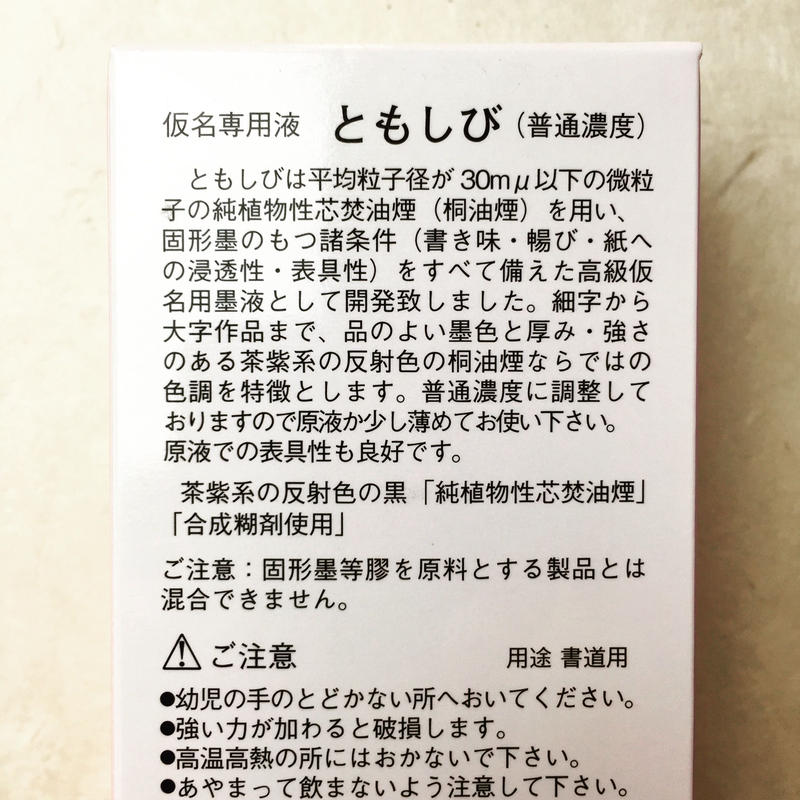 仮名専用液 ともしび（普通濃度）
ともしびは平均粒子径が 30mμ以下の微粒
子の純植物性芯焚油煙（桐油煙）を用い、
固形墨のもつ諸条件（書き味・暢び・紙へ
の浸透性・表具性）をすべて備えた高級仮
名用墨液として開発致しました。細字から
大字作品まで、品のよい墨色と厚み・強さ
のある茶紫系の反射色の桐油煙ならではの
色調を特徴とします。普通濃度に調整して
おりますので原液か少し薄めてお使い下さい。
原液での表具性も良好です。
茶紫系の反射色の黒「純植物性芯焚油煙」
「合成糊剤使用」
ご注意：固形墨等膠を原料とする製品とは
混合できません。
⚠ご注意 用途 書道用
●幼児の手のとどかない所へおいてください。
●強い力が加わると破損します。
●高温高熱の所にはおかないで下さい。
●あやまって飲まないよう注意して下さい。